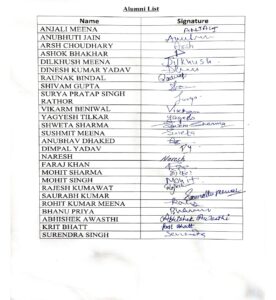 Alumni List
Name Signature
ANJALI MEENA ANJALI
ANUBHUTI JAIN Anubhuti
ARSH CHOUDHARY Arsh
ASHOK BHAKHAR
DILKHUSH MEENA Dilkhush
DINESH KUMAR YADAV Dinesh
RAUNAK BINDAL
SHIVAM GUPTA
SURYA PRATAP SINGH
RATHOR Surya
VIKARM BENIWAL Vikram
YAGYESH TILKAR Yagyesh
SHWETA SHARMA Shweta Sharma
SUSHMIT MEENA
ANUBHAV DHAKED
DIMPAL YADAV
NARESH Naresh
FARAJ KHAN
MOHIT SHARMA
MOHIT SINGH Mohit
RAJESH KUMAWAT
SAURABH KUMAR
ROHIT KUMAR MEENA
BHANU PRIYA
ABHISHEK AWASTHI Abhishek Awasthi
KRIT BHATT Krit Bhatt
SURENDRA SINGH